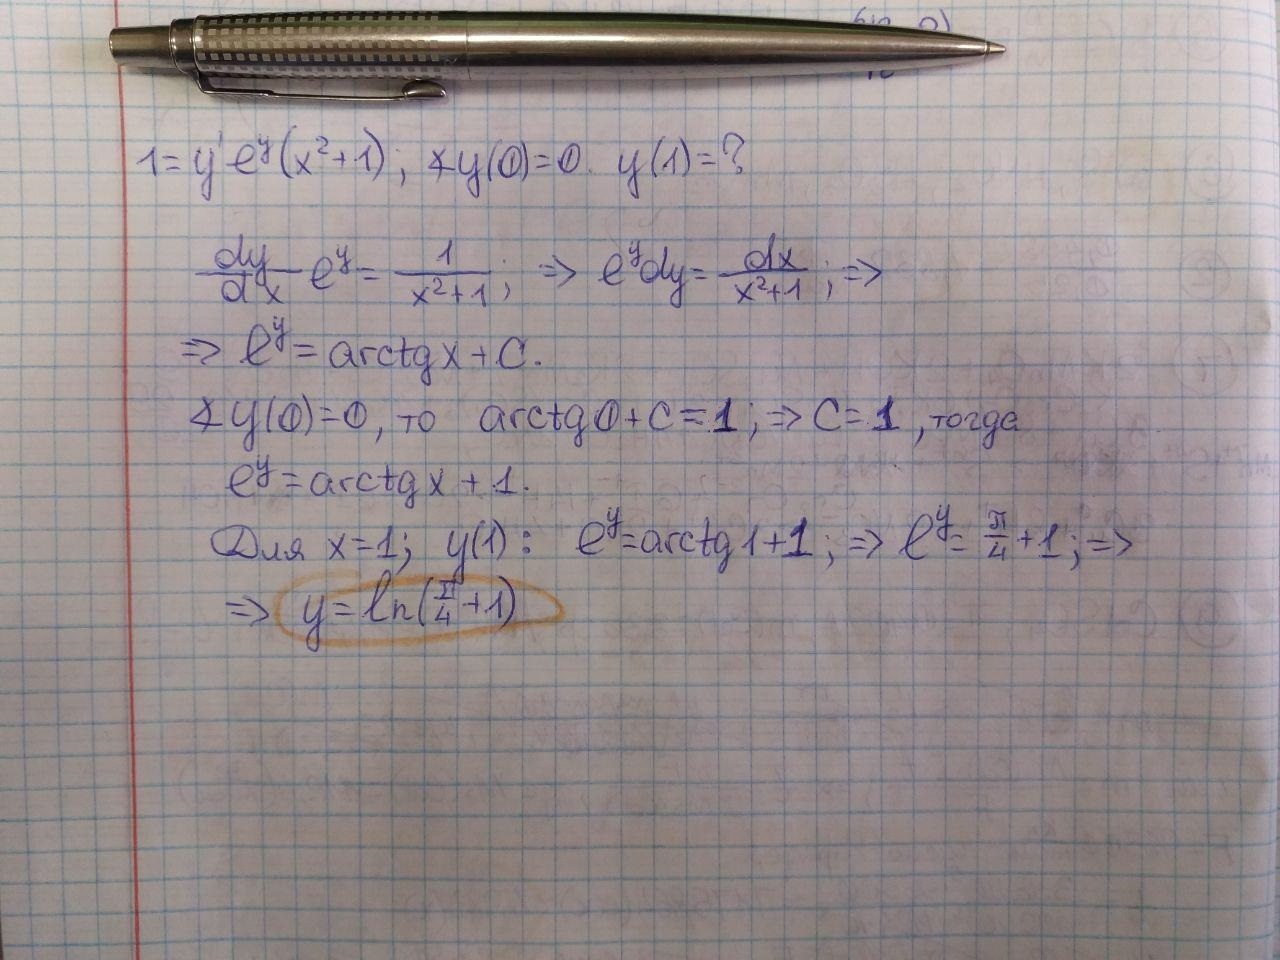 1 = y' e^y (x² + 1); ∡ y(0) = 0. y(1) = ?
dy/dx e^y = 1/(x² + 1); ⇒ e^y dy = dx/(x² + 1); ⇒
⇒ e^y = arctg x + C.
∡ y(0) = 0, то arctg 0 + C = 1; ⇒ C = 1, тогда
e^y = arctg x + 1.
Для x = 1; y(1): e^y = arctg 1 + 1; ⇒ e^y = π/4 + 1; ⇒
⇒ y = ln(π/4 + 1)